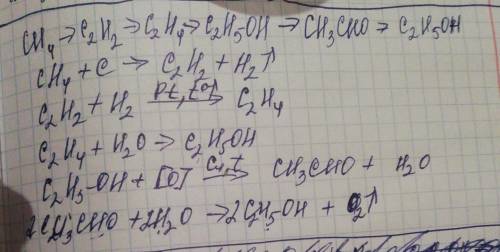 CH₄ → C₂H₂ → C₂H₄ → C₂H₅OH → CH₃CHO → C₂H₅OH
CH₄ + C → C₂H₂ + H₂↑
C₂H₂ + H₂ →(Pt, t°) C₂H₄
C₂H₄ + H₂O → C₂H₅OH
C₂H₅-OH + [O] →(Cu, t) CH₃CHO + H₂O
2CH₃CHO + 2H₂O → 2C₂H₅OH + O₂↑